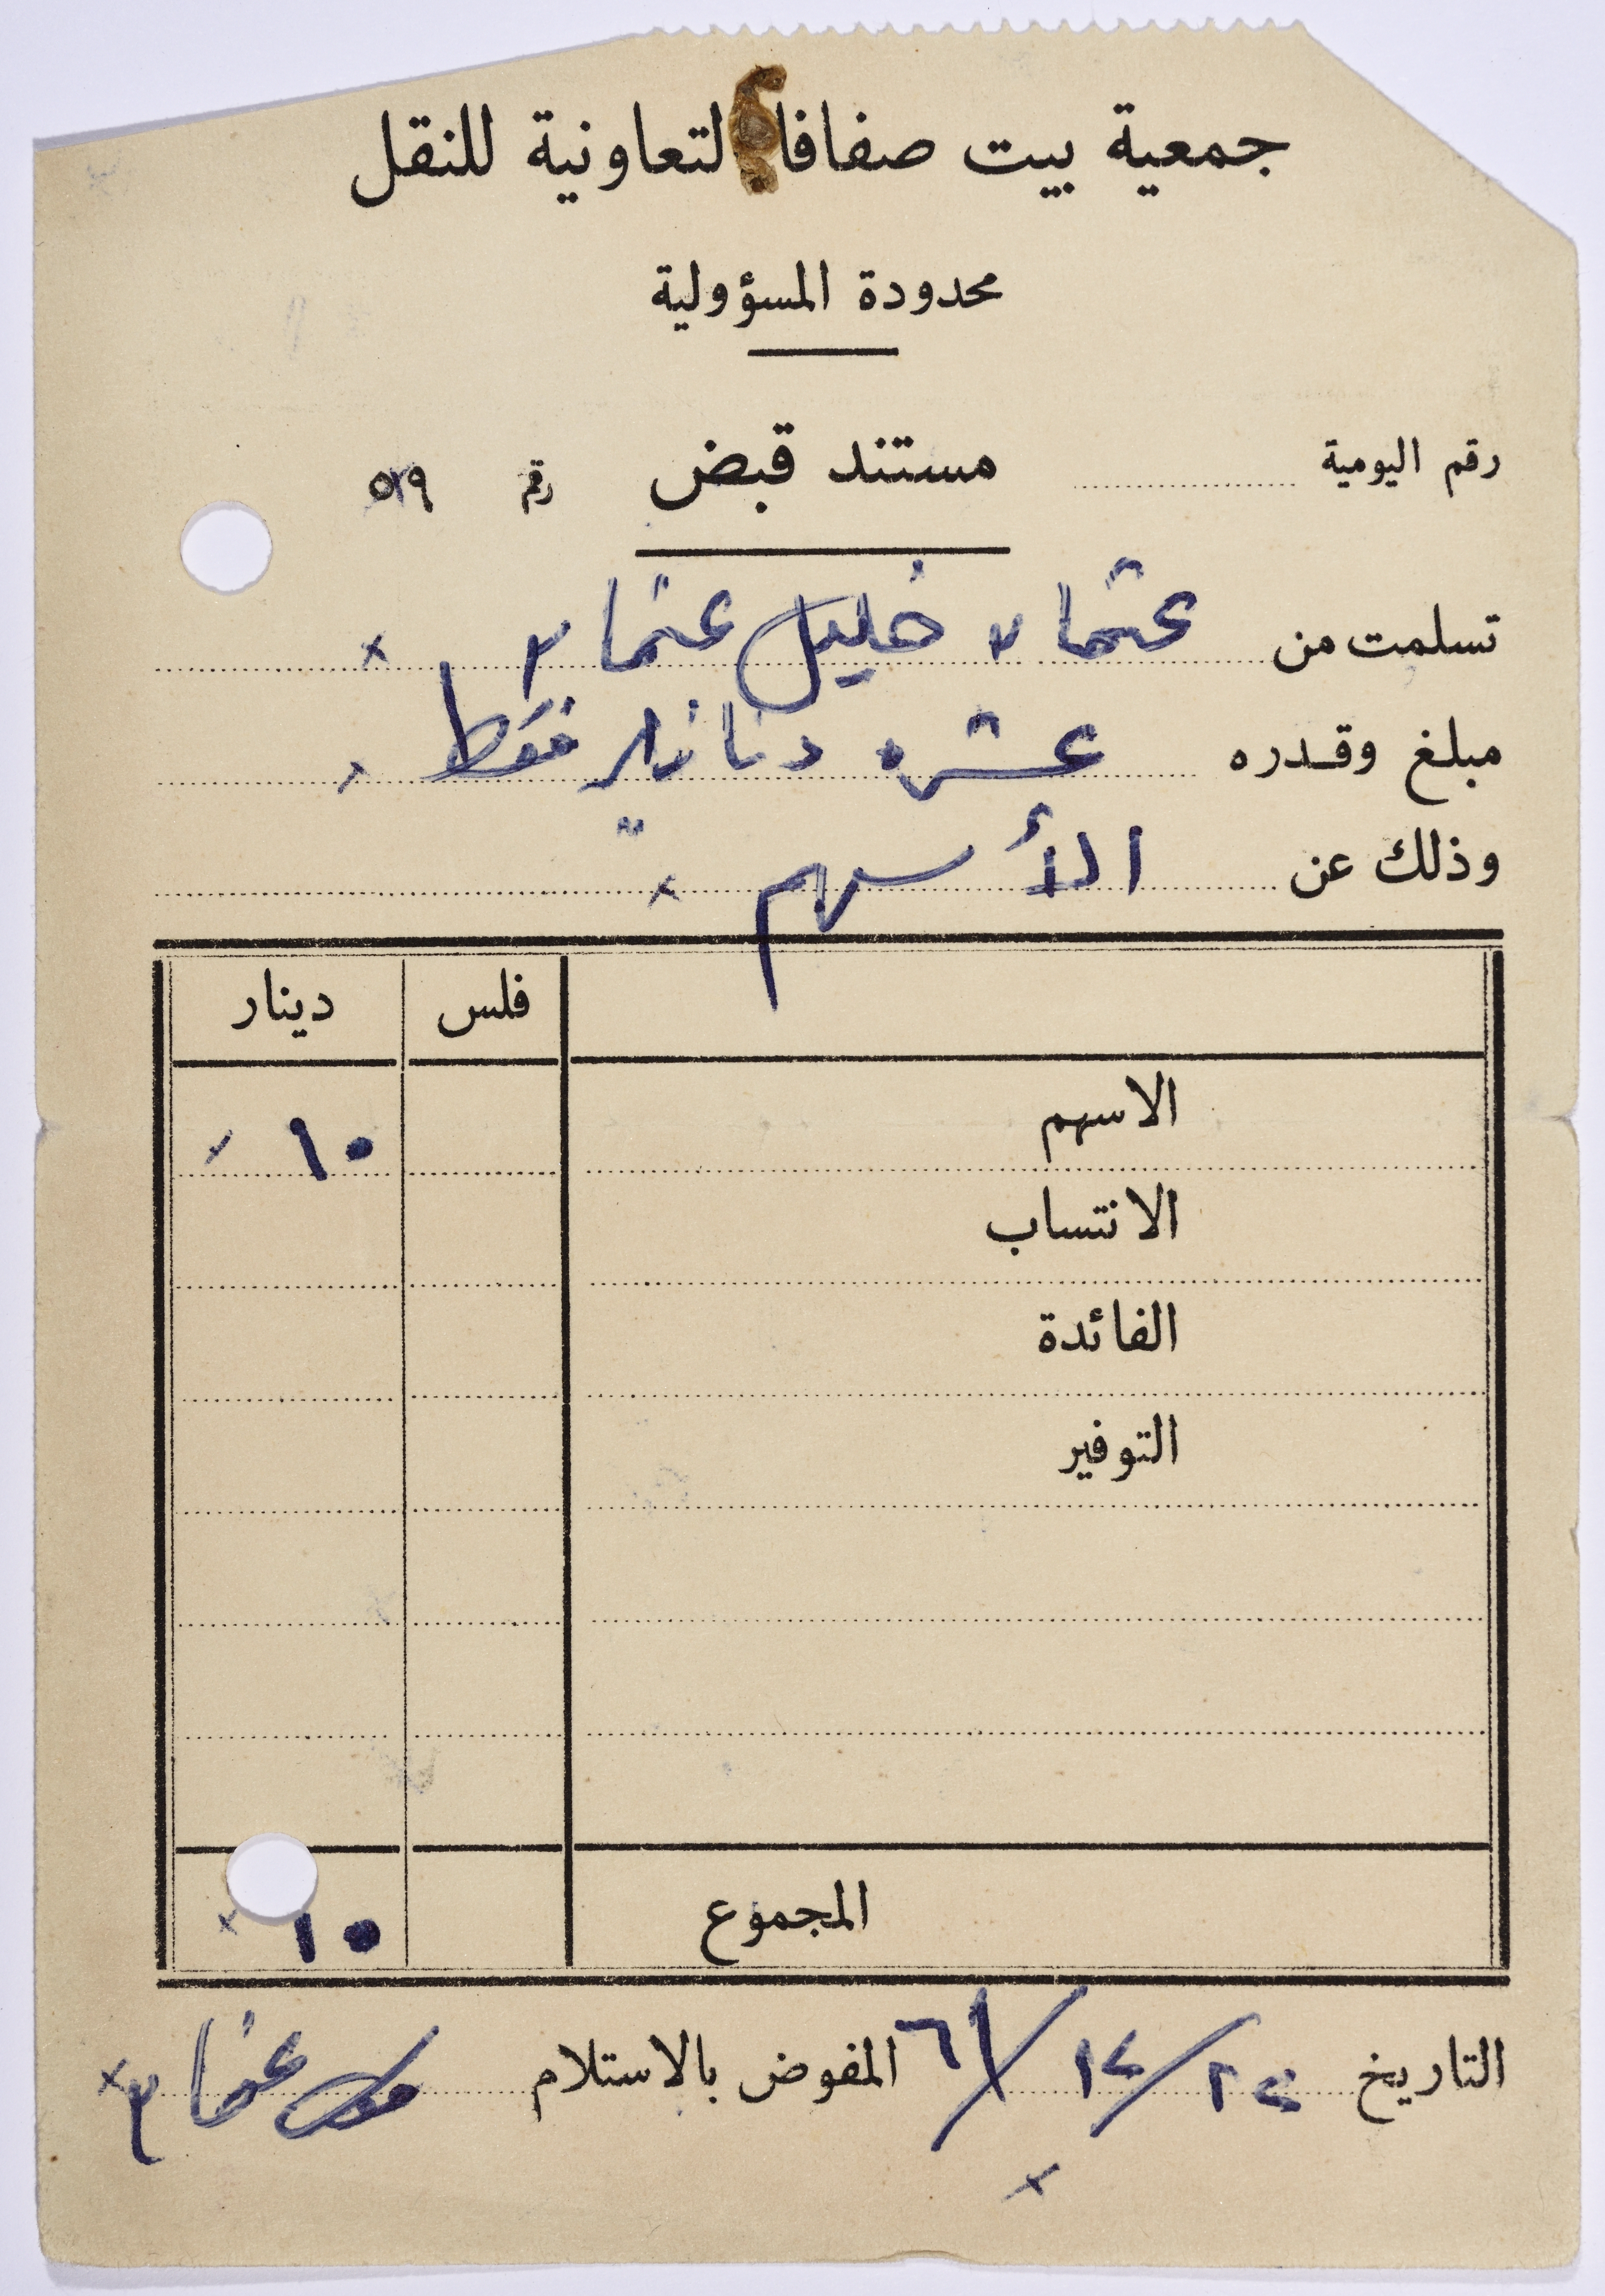 جمعية بيت صفافا التعاونية للنقل
محدودة المسؤولية
رقم اليومية مستند قبض رقم ٥٢٩
تسلمت من عثمان خليل عثمان
مبلغ وقدره عشره دنانير فقط
وذلك عن الأسهم
فلس دينار
الاسهم ١٠
الانتساب
الفائدة
التوفير
المجموع ١٠
التاريخ ٢٥/١٢/٦١ المفوض بالاستلام عثمان